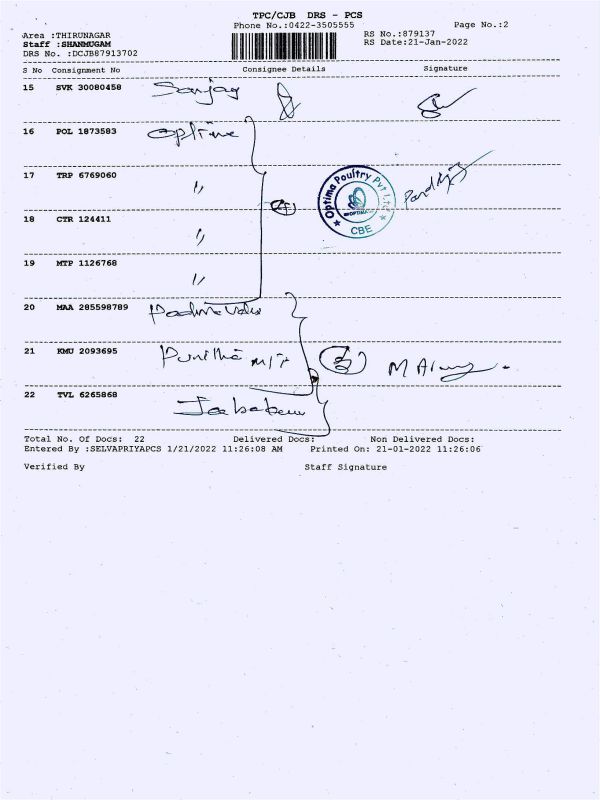 TPC/CJB DRS - PCS
Phone No.:0422-3505555 Page No.:2
Area :THIRUNAGAR RS No.:879137
Staff :SHANMUGAM RS Date:21-Jan-2022
DRS No. :DCJB87913702
S No Consignment No Consignee Details Signature
15 SVK 30080458 Sanjay
16 POL 1873583 Optima
17 TRP 6769060 〃
Optima Poultry Pvt Ltd
OPTIMA
CBE
18 CTR 124411 〃
19 MTP 1126768 〃
20 MAA 285598789
21 KMU 2093695 Punitha
22 TVL 6265868
Total No. Of Docs: 22 Delivered Docs: Non Delivered Docs:
Entered By :SELVAPRIYAPCS 1/21/2022 11:26:08 AM Printed On: 21-01-2022 11:26:06
Verified By Staff Signature